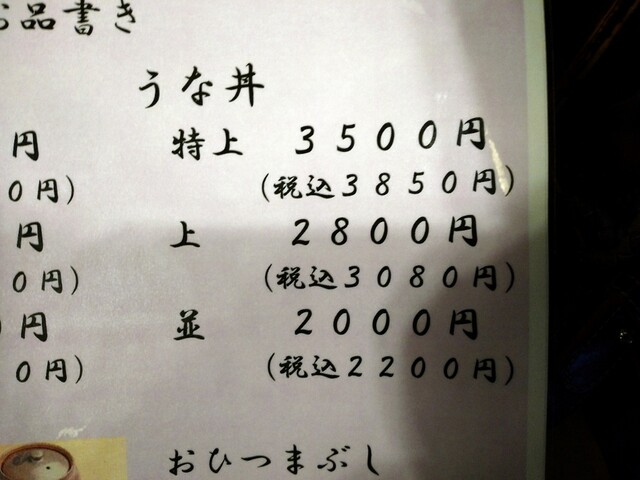 お品書き
うな丼
円 特上 3500円
0円) (税込3850円)
円 上 2800円
0円) (税込3080円)
円 並 2000円
0円) (税込2200円)
おひつまぶし